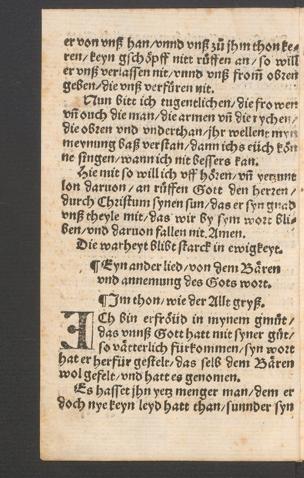 er von vnß han/vnnd vnß zů jhm thon ke=
ren/keyn gschöpff nitt růffen an/so will
er vnß verlassen nit/vnnd vnß from̃ obren
geben/die vnß verfüren nit.
Nun bitt ich tugentlichen/die frowen
vñ ouch die man/die armen vñ die rychen/
die obren vnd vnderthan/jhr wellent myn
meynung baß verstan/dann ichs eüch kön
ne singen/wann ich nit bessers kan.
Hie mit so will ich vff hören/vñ yetzunt
lon daruon/an rüffen Gott den herren/
durch Christum synen sun/das er syn gnad
vnß theyle mit/das wir by sym wort bli=
ben/vnd daruon fallen nit. Amen.
Die warheyt blibt starck in ewigkeyt.
¶ Eyn ander lied/von dem Bären
vnd annemung des Gots wort.
¶ Im thon/wie der Allt gryß.
ICh bin erfröüd in mynem gmüt/
das vnnß Gott hatt mit syner güt/
so vätterlich fürkommen/syn wort
hat er herfür gestelt/das selb dem Bären
wol gefelt/vnd hatt es genomen.
Es hasset jhn yetz menger man/dem er
doch nye keyn leyd hatt than/sunnder syn